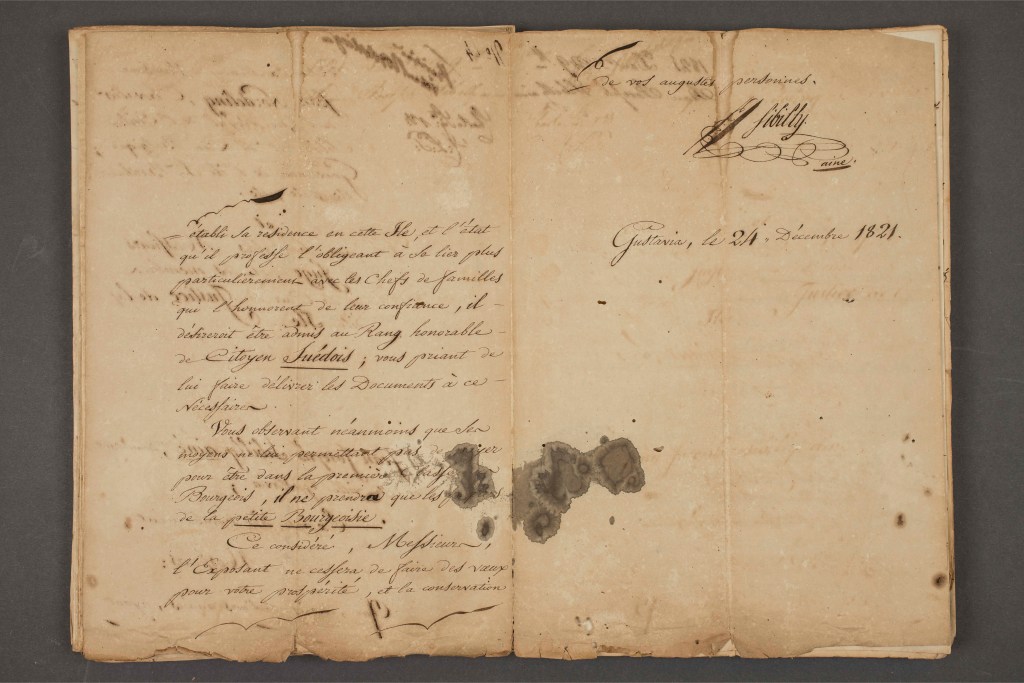 établi sa résidence en cette Ile, et l'état
qu'il professe l'obligeant à se lier plus
particulièrement avec les Chefs de familles
qui l'honnorent de leur confiance, il
désireroit être admis au Rang honorable
de Citoyen Suédois; vous priant de
lui faire délivrer les Documents à ce
Nécessaires.
Vous observant néanmoins que ses
moyens ne lui permettant pas
pour être dans la première
Bourgeois, il ne prendra que les
de la petite Bourgeoisie.
Ce considéré, Messieurs,
l'Exposant ne cessera de faire des vœux
pour votre prospérité, et la conservation
de vos augustes personnes.
Sibilly
ainé.
Gustavia, le 24. Décembre 1821.